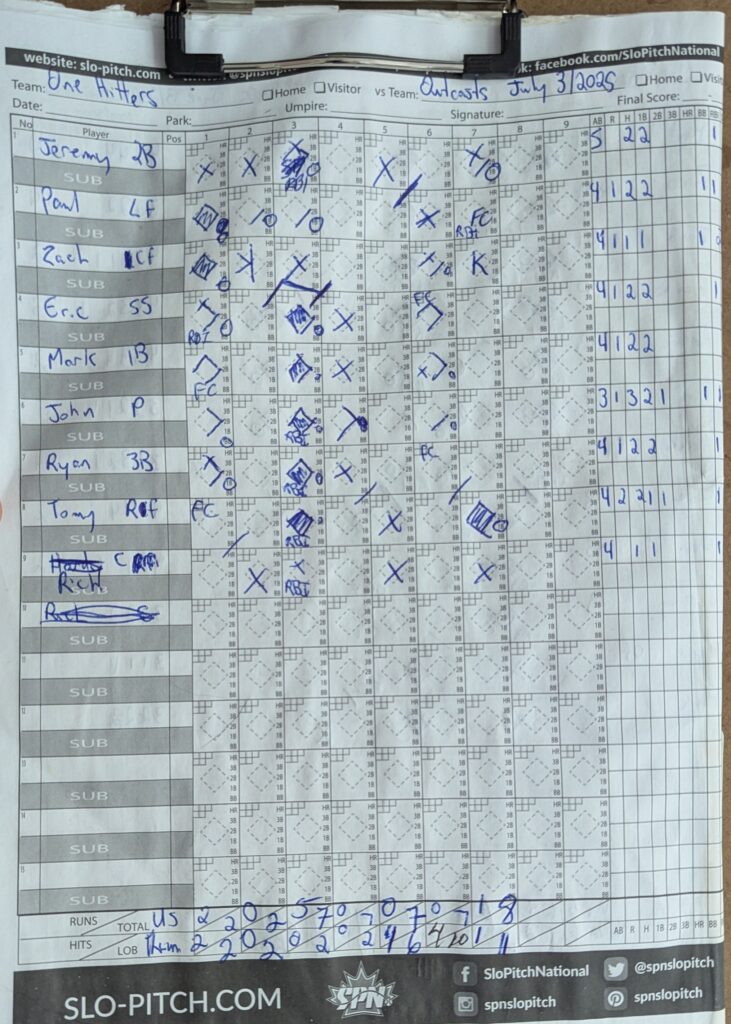 website: slo-pitch.com @spnslop k: facebook.com/SloPitchNational
Team: One Hitters Home Visitor vs Team: Outcasts July 3/2025 Home Visi
Date: Park: Umpire: Signature: Final Score:
No Player Pos 1 2 3 4 5 6 7 8 9 AB R H 1B 2B 3B HR BB RBI
1 Jeremy 2B 5 2 2 1
SUB
2 Paul LF 4 1 2 2 1 1
SUB RBI FC RBI
3 Zach CF K 4 1 1 1 1
SUB
4 Eric SS FC 4 1 2 2 1
SUB RBI
5 Mark 1B 4 1 2 2
SUB FC
6 John P 3 1 3 2 1 1 1
SUB RBI FC
7 Ryan 3B 4 1 2 2 1
SUB RBI
8 Tomy RF FC 4 2 2 1 1 1
SUB RBI
9 C 4 1 1 1
Rich SUB RBI
SUB
11
SUB
12
SUB
13
SUB
14
SUB
15
SUB
RUNS TOTAL US 2 2 0 2 5 7 0 7 0 7 0 7 1 8
HITS LOB Them 2 2 0 2 0 2 0 2 4 6 4 10 1 11 AB R H 1B 2B 3B HR BB
SLO-PITCH.COM SPN SloPitchNational @spnslopitch
spnslopitch spnslopitch